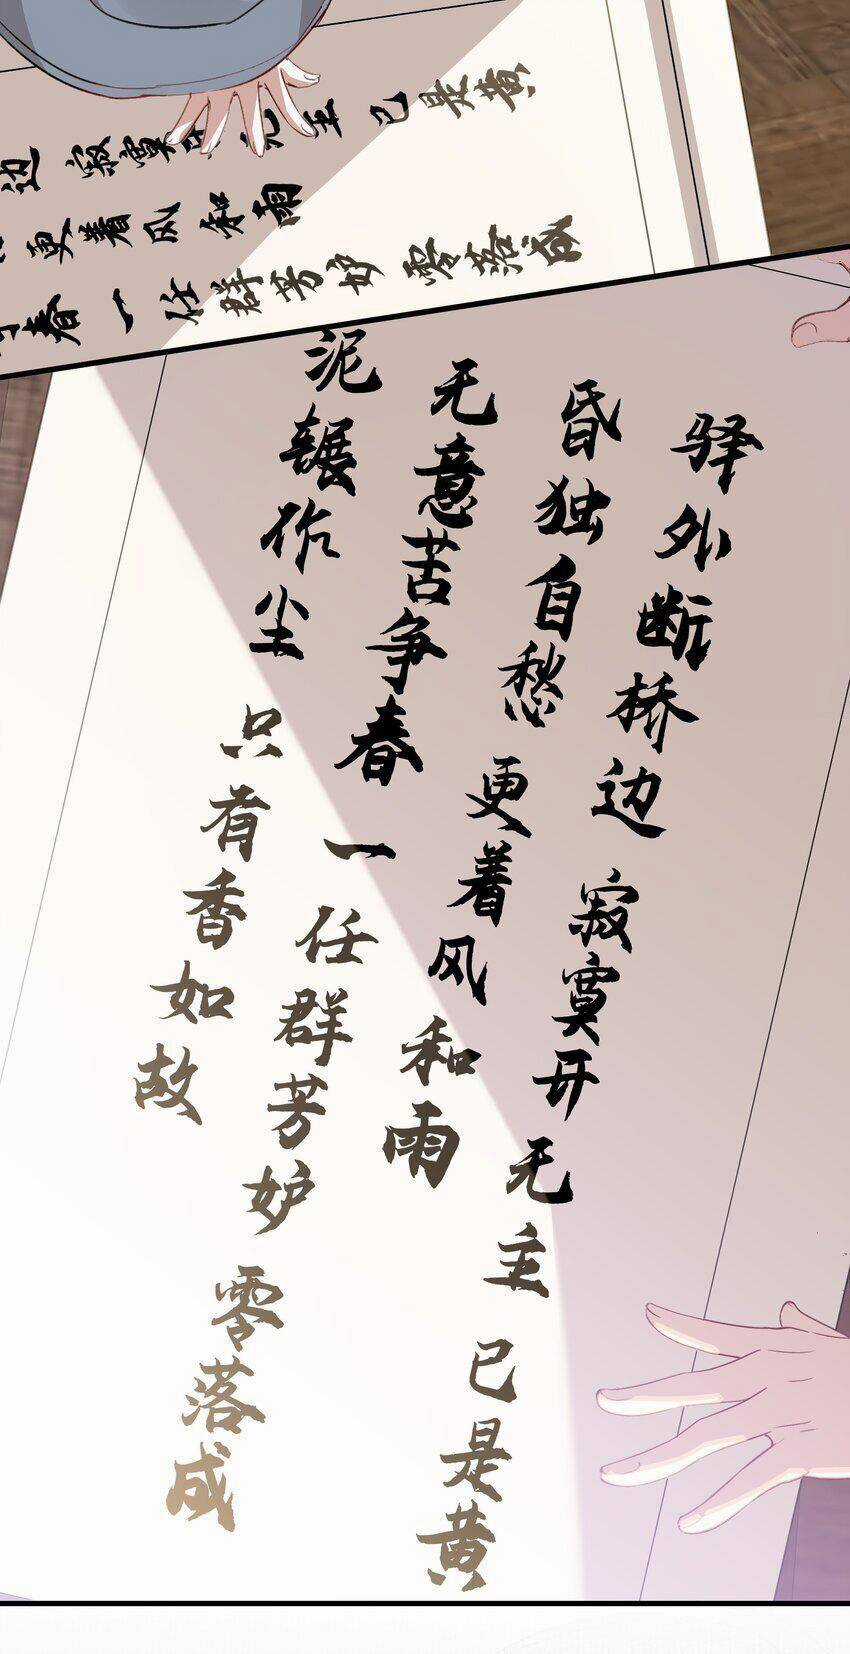 边 寂寞开无主 已是黄
更着风和雨
争春 一任群芳妒 零落成
驿外断桥边 寂寞开无主 已是黄
昏独自愁 更着风和雨
无意苦争春 一任群芳妒 零落成
泥辗作尘 只有香如故